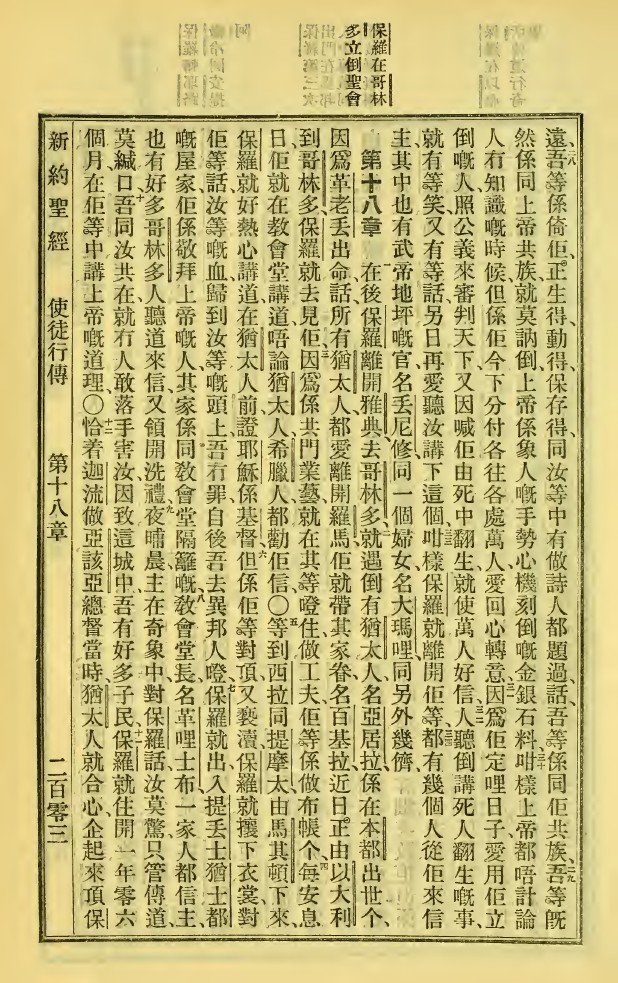 保羅在哥林
多立倒聖會
遠吾等係倚佢正生得動得保存得同汝等中有做詩人都題過話吾等係同佢共族吾等既
然係同上帝共族就莫訥倒上帝係象人嘅手勢心機刻倒嘅金銀石料咁樣上帝都唔計論
人冇知識嘅時候但係佢今下分付各往各處萬人愛回心轉意因爲佢定哩日子愛用佢立
倒嘅人照公義來審判天下又因喊佢由死中翻生就使萬人好信人聽倒講死人翻生嘅事
就有等笑又有等話另日再愛聽汝講下這個咁樣保羅就離開佢等都有幾個人從佢來信
主其中也有武帝地坪嘅官名丟尼修同一個婦女名大瑪哩同另外幾儕
第十八章 在後保羅離開雅典去哥林多就遇倒有猶太人名亞居拉係在本都出世个
因爲革老丢出命話所有猶太人都愛離開羅馬佢就帶其家眷名百基拉近日正由以大利
到哥林多保羅就去見佢因爲係共門業藝就在其等嶝住做工夫佢等係做布帳个每安息
日佢就在教會堂講道唔論猶太人希臘人都勸佢信〇等到西拉同提摩太由馬其頓下來
保羅就好熱心講道在猶太人前證耶穌係基督但係佢等對頂又褻瀆保羅就攘下衣裳對
佢等話汝等嘅血歸到汝等嘅頭上吾冇罪自後吾去異邦人嶝保羅就出入提丢士猶士都
嘅屋家佢係敬拜上帝嘅人其家係同敎會堂隔籬嘅敎會堂長名革哩士布一家人都信主
也有好多哥林多人聽道來信又領開洗禮夜晡晨主在奇象中對保羅話汝莫驚只管傳道
莫緘口吾同汝共在就冇人敢落手害汝因致這城中吾有好多子民保羅就住開一年零六
個月在佢等中講上帝嘅道理〇恰着迦流做亞該亞總督當時猶太人就合心企起來頂保
新約聖經 使徒行傳 第十八章 二百零三